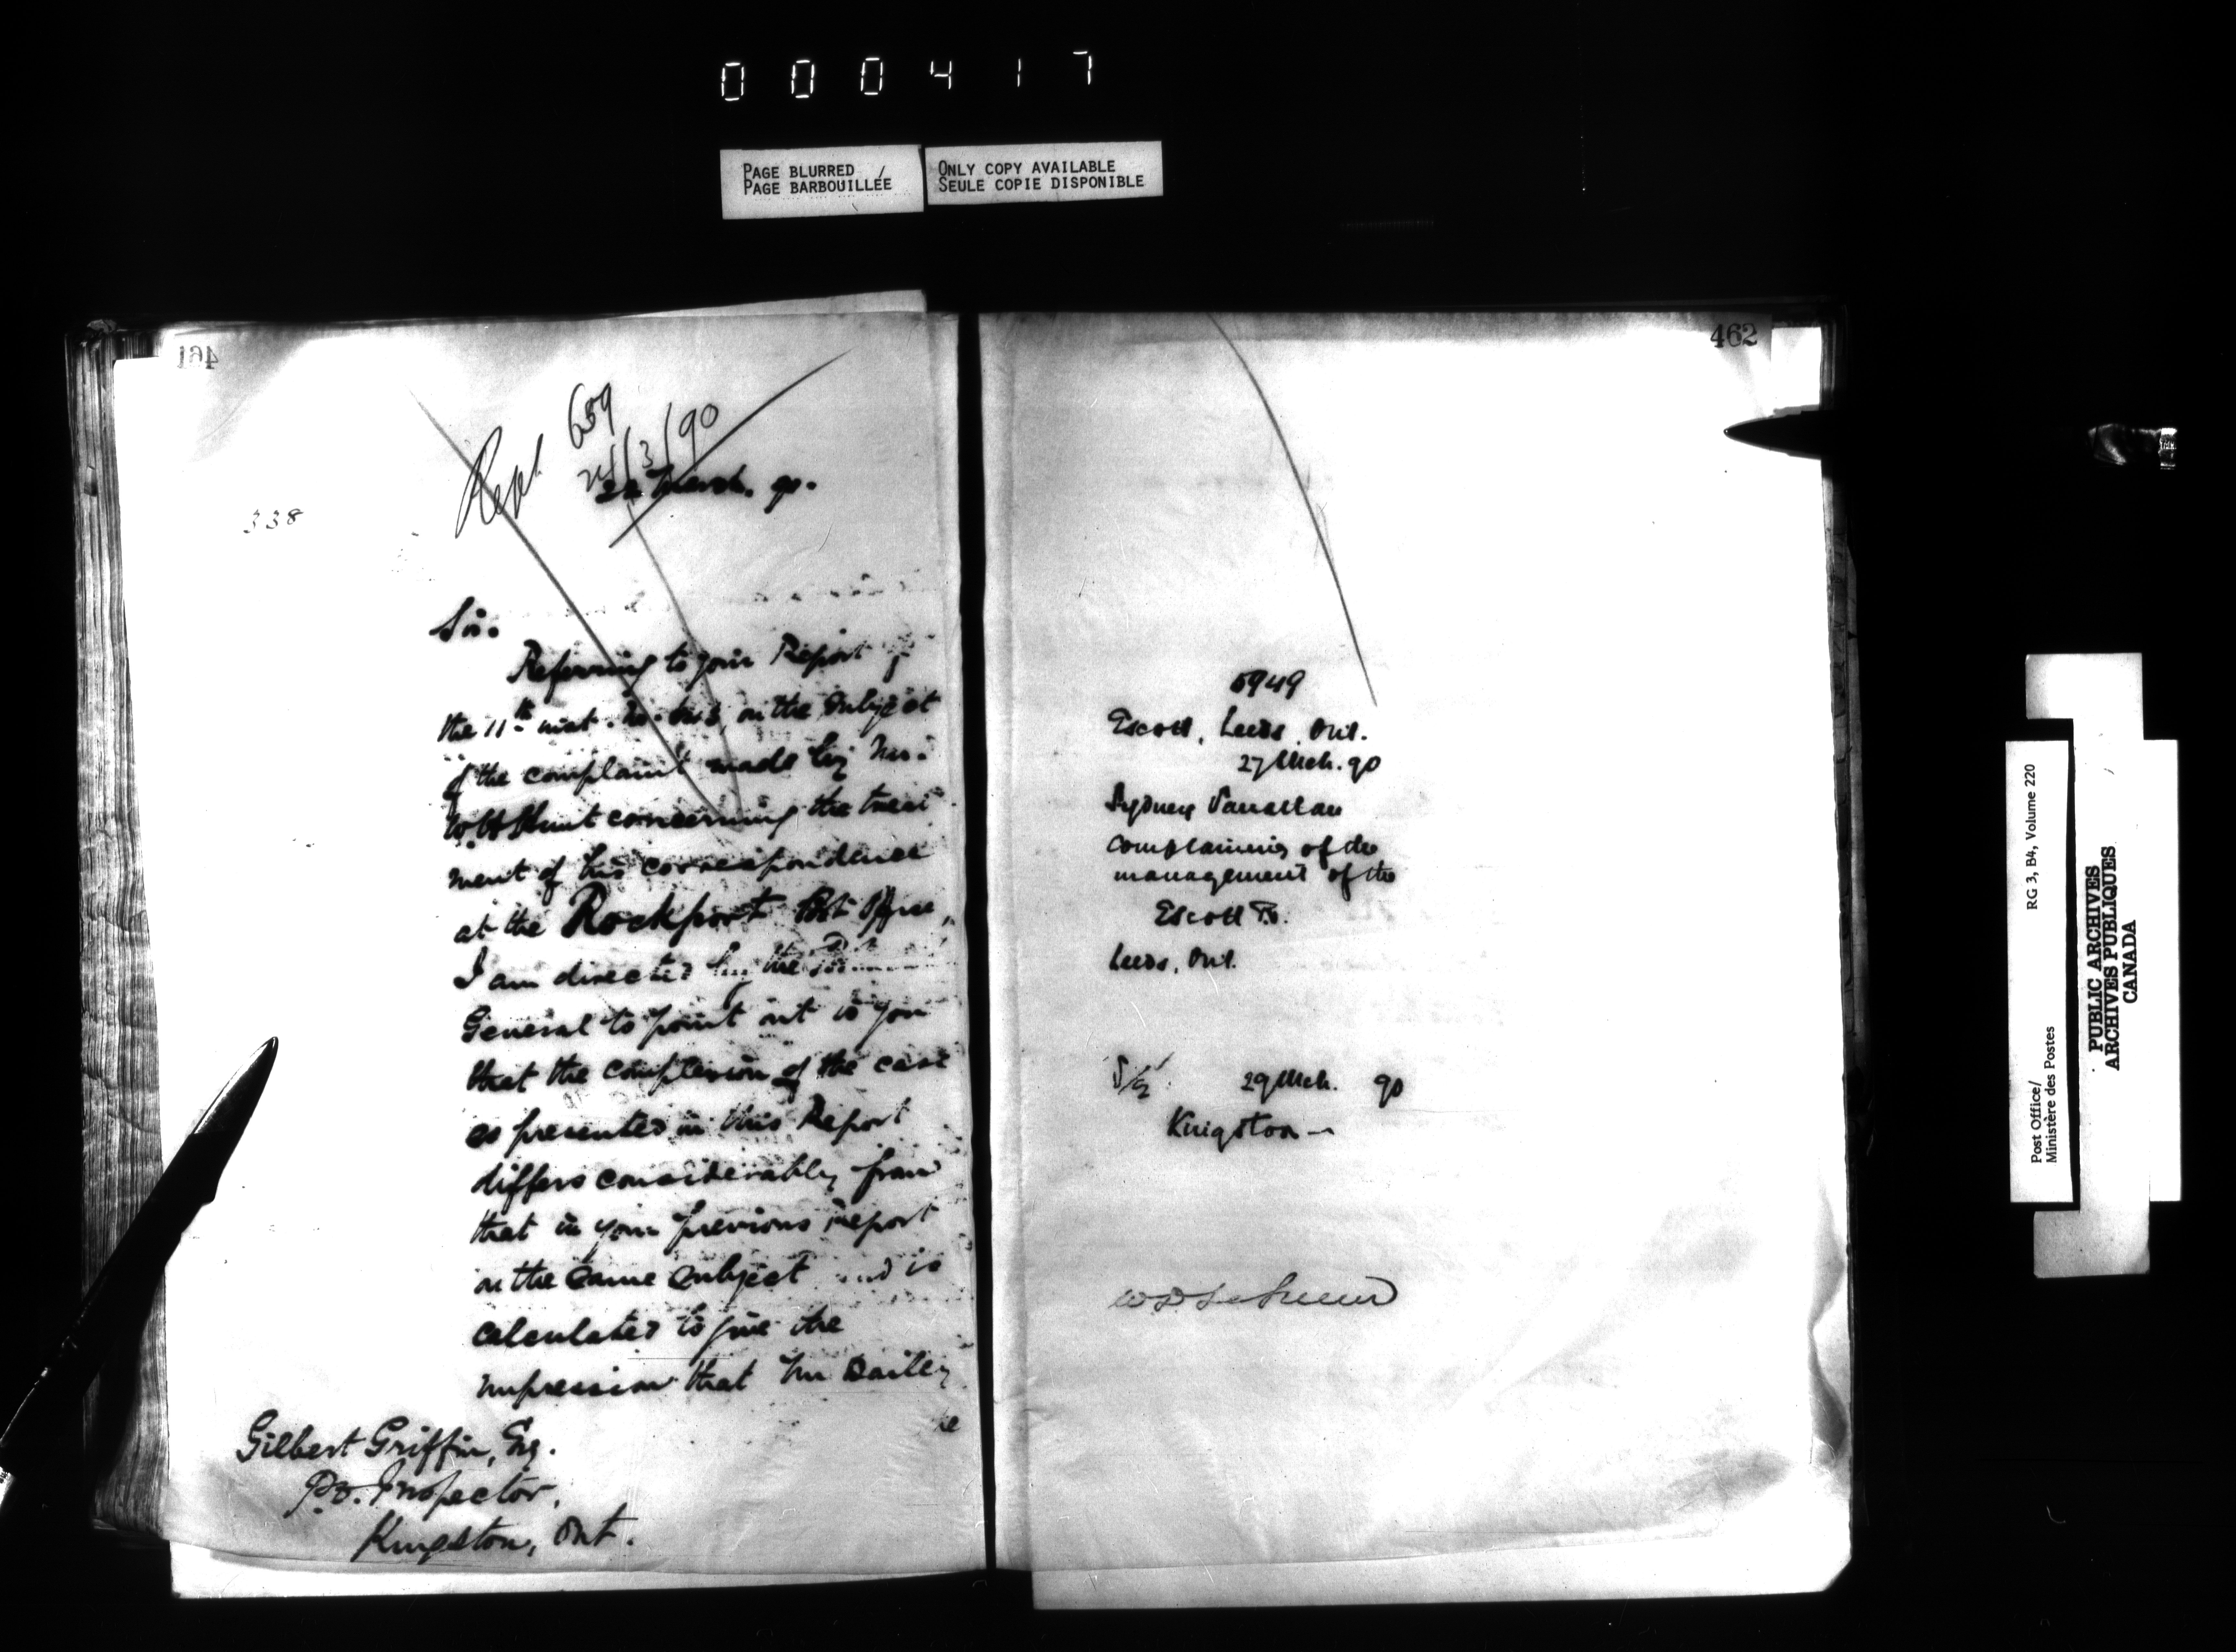 000417
PAGE BLURRED /
PAGE BARBOUILLÉE
ONLY COPY AVAILABLE
SEULE COPIE DISPONIBLE
461
Rept 659
24/3/90
March. 90.
338
Sir.
Referring to your Report of
the 11th inst. on the subject
of the complaint made by Mr.
Hunt concerning the treat
ment of his correspondence
at the Rockport Post Office,
I am directed by the
General to point out to you
that the complexion of the case
as presented in this Report
differs considerably from
that in your previous report
on the same subject and is
calculated to give the
impression that Mr Bailey
Gilbert Griffin, Esq.
P.O. Inspector,
Kingston, Ont.
462
5949
Escott, Leeds, Ont.
27 Mch. 90
Sydney
complaining of the
management of the
Escott P.O.
Leeds, Ont.
29 Mch. 90
Kingston —
Post Office/
Ministère des Postes
RG 3, B4, Volume 220
PUBLIC ARCHIVES
ARCHIVES PUBLIQUES
CANADA